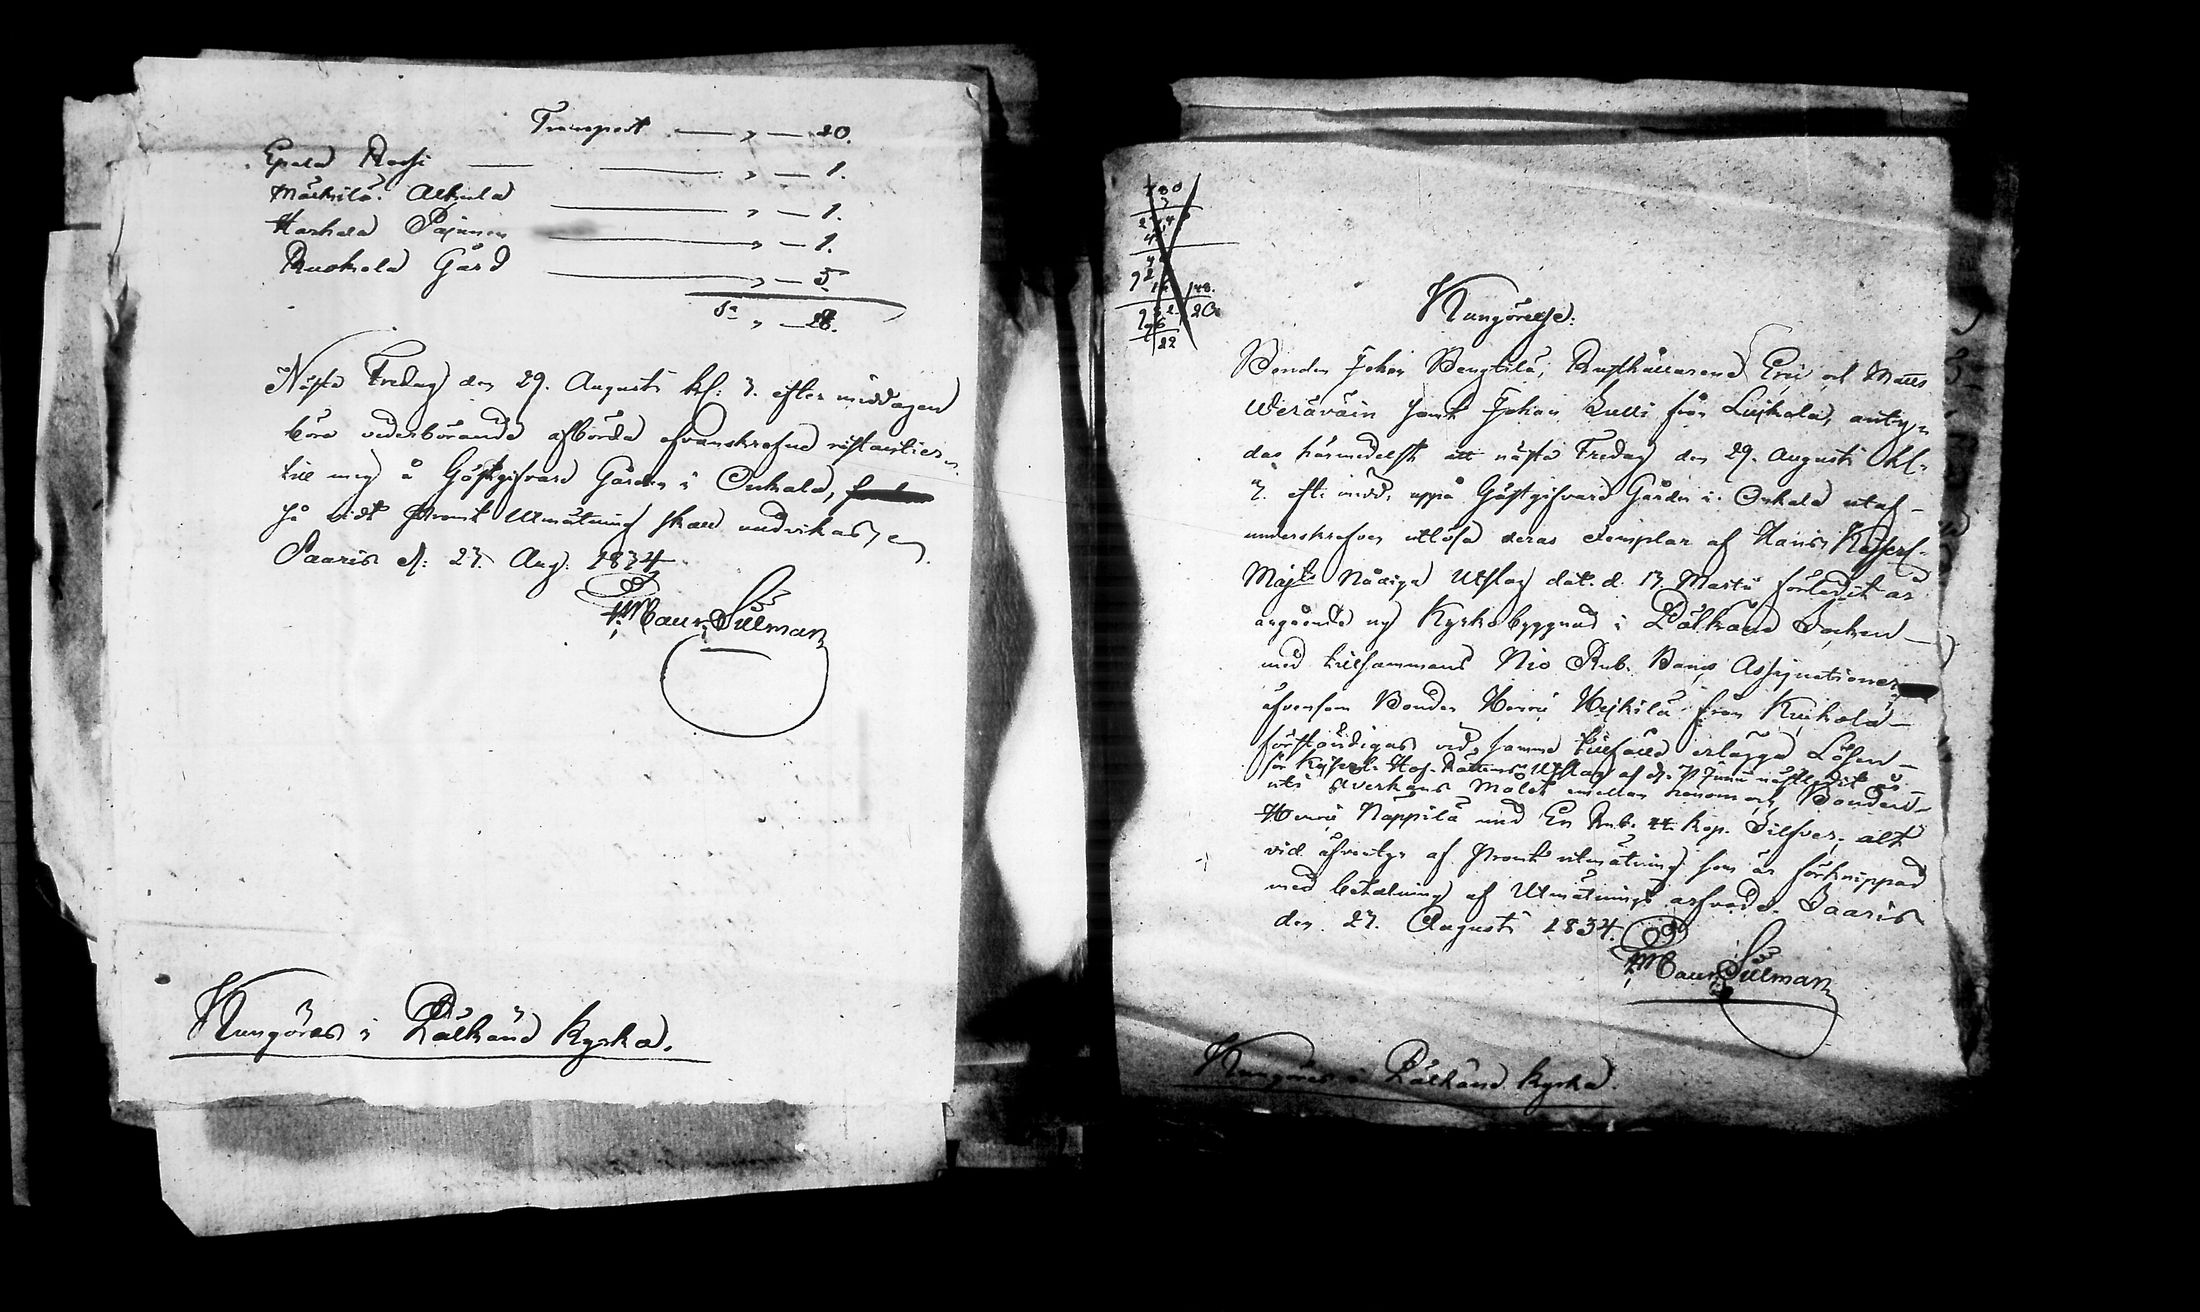 Transport — „ — 20.
Epala Rossi — „ — 1.
Mälkilä Alkula — „ — 1.
Harhala Pajunen — „ — 1.
Ruokola Gård — „ — 5
S:a „ — 28.
Nästa Fredag den 29. Augusti kl: 3. efter middagen
böra vederbörande afbörda ofvanskrefne restantier
till mig å Gästgifvare Gården i Onkala,
så vidt promt Utmätning skall undvikas,
Saaris d: 27. Aug. 1834
Maur. Silman
Kungöres i Pälkäne Kyrka.
Kungörelse:
Bonden Johan Bengtilä, Rusthållarena Eric och Matts
Johan Lulli från Luikala, anty-
das härmedelst att nästa Fredag den 29. Augusti kl:
3. eft: midd. uppå Gästgifvare Gården i Onkala utaf
underskrefven utlösa deras exemplar af Hans Kejserl.
Majts Nådiga Utslag dat. d. 13. Martii förledit år
angående ny Kyrkobyggnad i Pälkäne Socken
med tillsammans Nio Rub. Banco Assignationer
äfvensom Bonden Henric Hejkilä från Kuckola
förständigas vid samma tillfälle erlägga Lösen
för Kejserl. Hof-Rättens Utslag af d. Junii
uti Åverkans Målet emellan honom och Bonden
Henric Näppilä med En Rub. 44. Kop. Silfver, allt
vid äfventyr af promt utmätning som är förknippad
med betalning af Utmätnings arfvode. Saaris
den 27. Augusti 1834.
Maur. Silman
Kungöres i Pälkäne Kyrka.